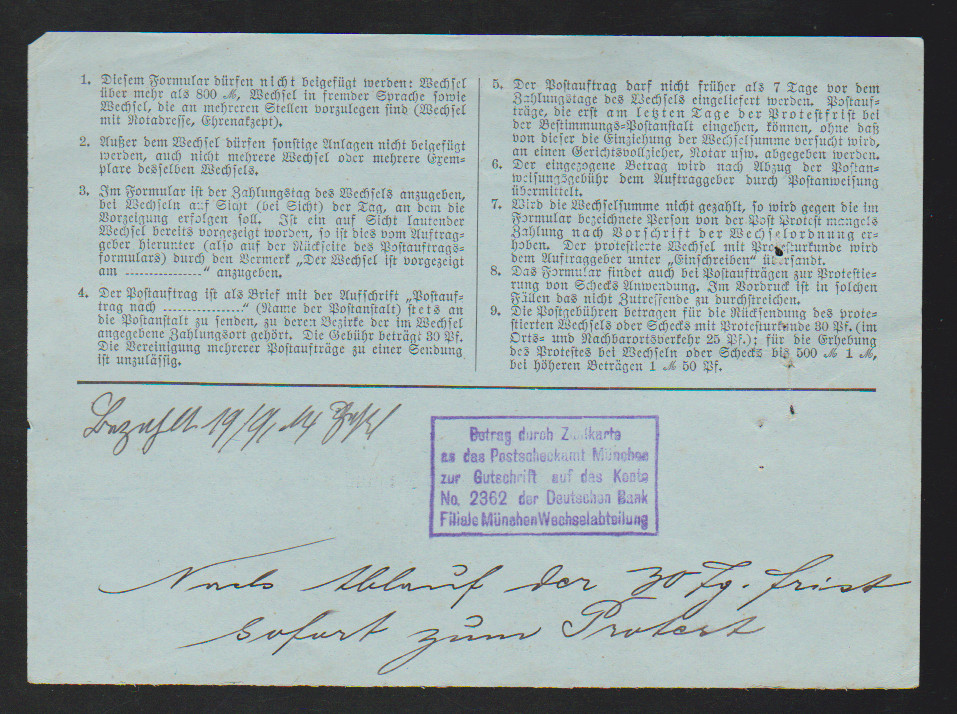 1. Diesem Formular dürfen nicht beigefügt werden: Wechsel
über mehr als 800 ℳ, Wechsel in fremder Sprache sowie
Wechsel, die an mehreren Stellen vorzulegen sind (Wechsel
mit Notadresse, Ehrenakzept).
2. Außer dem Wechsel dürfen sonstige Anlagen nicht beigefügt
werden, auch nicht mehrere Wechsel oder mehrere Exem-
plare desselben Wechsels.
3. Im Formular ist der Zahlungstag des Wechsels anzugeben,
bei Wechseln auf Sicht (bei Sicht) der Tag, an dem die
Vorzeigung erfolgen soll. Ist ein auf Sicht lautender
Wechsel bereits vorgezeigt worden, so ist dies vom Auftrag-
geber hierunter (also auf der Rückseite des Postauftrags-
formulars) durch den Vermerk „Der Wechsel ist vorgezeigt
am ..............“ anzugeben.
4. Der Postauftrag ist als Brief mit der Aufschrift „Postauf-
trag nach ................“ (Name der Postanstalt) stets an
die Postanstalt zu senden, zu deren Bezirke der im Wechsel
angegebene Zahlungsort gehört. Die Gebühr beträgt 30 Pf.
Die Vereinigung mehrerer Postaufträge zu einer Sendung
ist unzulässig.
5. Der Postauftrag darf nicht früher als 7 Tage vor dem
Zahlungstage des Wechsels eingeliefert werden. Postauf-
träge, die erst am letzten Tage der Protestfrist bei
der Bestimmungs-Postanstalt eingehen, können, ohne daß
von dieser die Einziehung der Wechselsumme versucht wird,
an einen Gerichtsvollzieher, Notar usw. abgegeben werden.
6. Der eingezogene Betrag wird nach Abzug der Postan-
weisungsgebühr dem Auftraggeber durch Postanweisung
übermittelt.
7. Wird die Wechselsumme nicht gezahlt, so wird gegen die im
Formular bezeichnete Person von der Post Protest mangels
Zahlung nach Vorschrift der Wechselordnung er-
hoben. Der protestierte Wechsel mit Protesturkunde wird
dem Auftraggeber unter „Einschreiben“ übersandt.
8. Das Formular findet auch bei Postaufträgen zur Protestie-
rung von Schecks Anwendung. Im Vordruck ist in solchen
Fällen das nicht Zutreffende zu durchstreichen.
9. Die Postgebühren betragen für die Rücksendung des prote-
stierten Wechsels oder Schecks mit Protesturkunde 30 Pf. (im
Orts- und Nachbarortsverkehr 25 Pf.); für die Erhebung
des Protestes bei Wechseln oder Schecks bis 500 ℳ 1 ℳ,
bei höheren Beträgen 1 ℳ 50 Pf.
Bezahlt 19/9/14
Betrag durch Zahlkarte
as das Postscheckamt München
zur Gutschrift auf das Konto
No. 2362 der Deutschen Bank
Filiale München Wechselabteilung
Nach Ablauf der 30 Tg. frist
sofort zum Protest